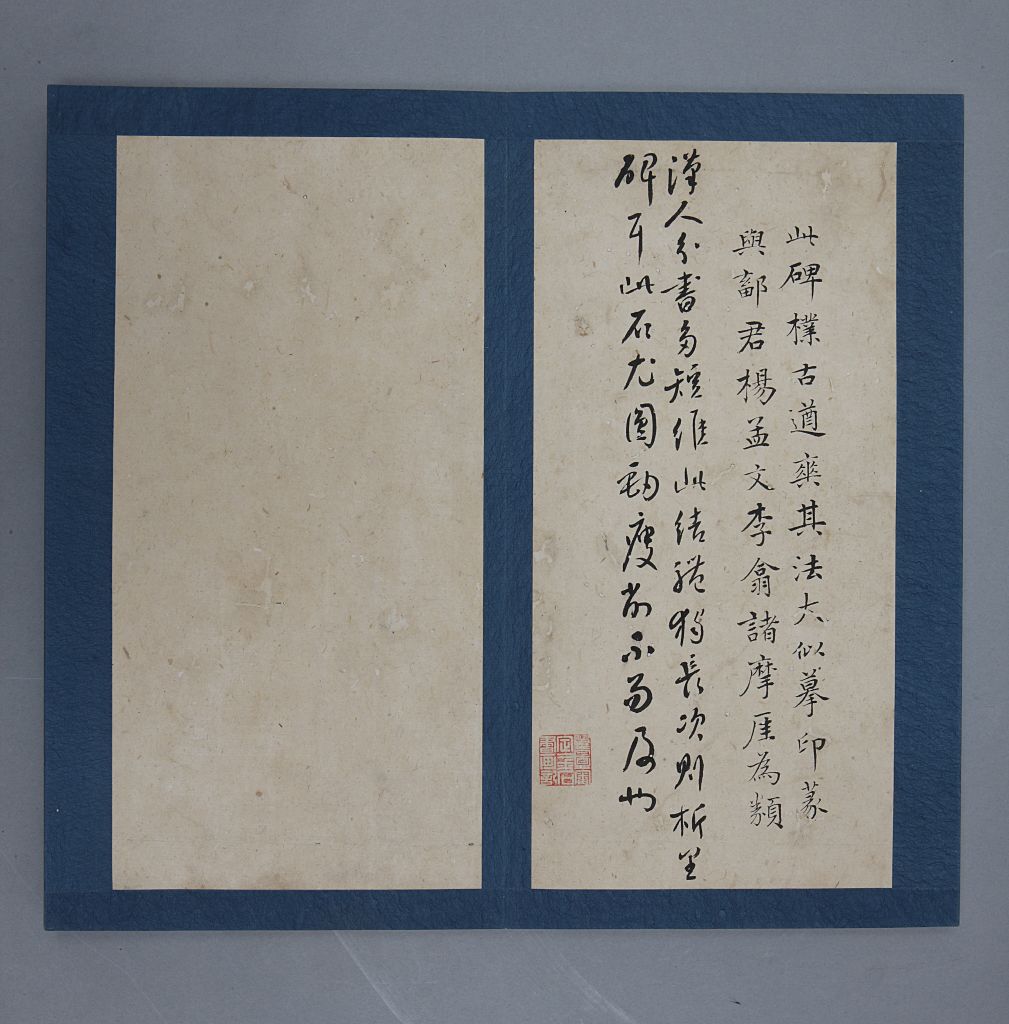 此碑樸古遒爽其法大似摹印篆
與鄐君楊孟文李翕諸摩厓為類
漢人分書多短惟此結體獨長次則析里
碑耳此石尤圓勁瘦削不易及也